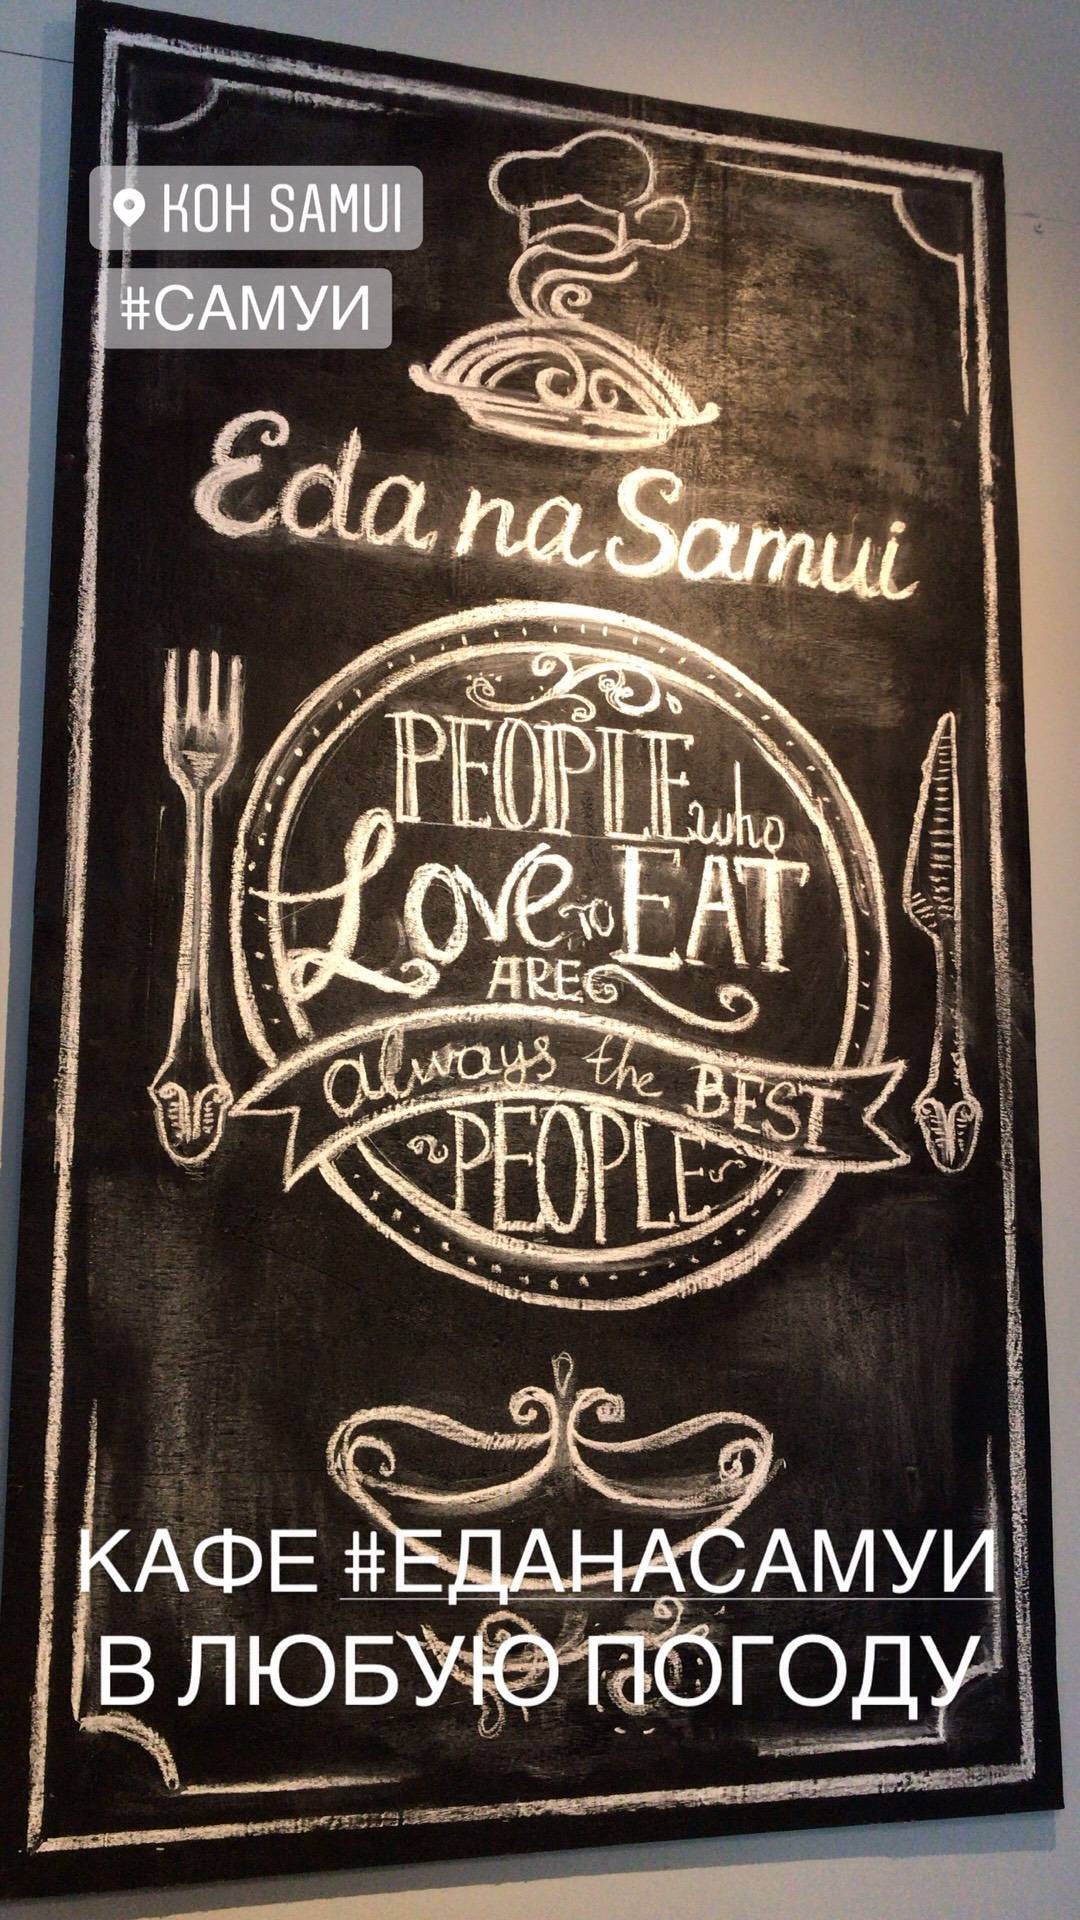 KOH SAMUI
#САМУИ
Eda na Samui
PEOPLE who
Love TO EAT
ARE
always the BEST
PEOPLE
КАФЕ #ЕДАНАСАМУИ
В ЛЮБУЮ ПОГОДУ